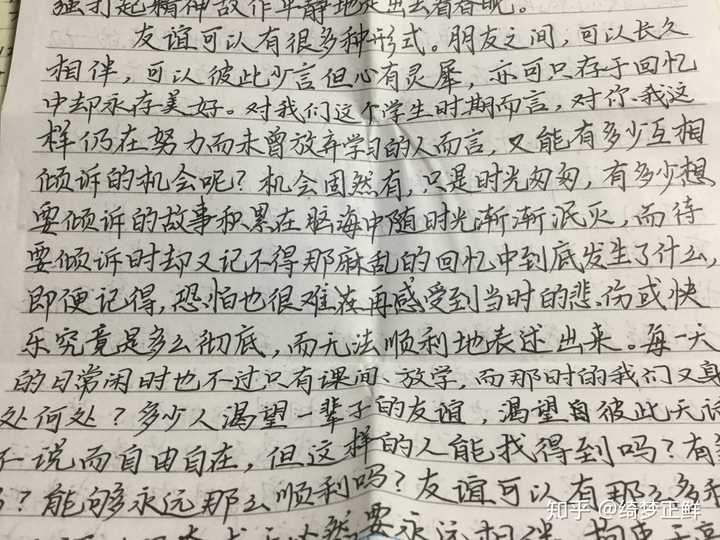 强打起精神故作平静地走出去看看呢。
友谊可以有很多种形式。朋友之间，可以长久
相伴，可以彼此少言但心有灵犀，亦可只存于回忆
中却永存美好。对我们这个学生时期而言，对你我这
样仍在努力而未曾放弃学习的人而言，又能有多少互相
倾诉的机会呢？机会固然有，只是时光匆匆，有多少想
要倾诉的故事积累在脑海中随时光渐渐泯灭，而待
要倾诉时却又记不得那麻乱的回忆中到底发生了什么，
即便记得，恐怕也很难再感受到当时的悲伤或快
乐究竟是多么彻底，而无法顺利地表述出来。每一天
的日常闲时也不过只有课间、放学，而那时的我们又身
处何处？多少人渴望一辈子的友谊，渴望自彼此无话
不说而自由自在，但这样的人能找得到吗？有
？能够永远那么顺利吗？友谊可以有那么多
然要永远相伴
知乎 @绮梦正鲜